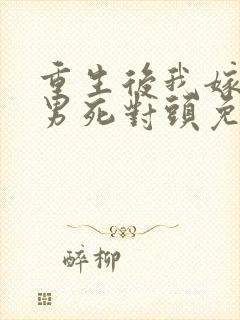 重生後我嫁
男死對頭免
醉柳